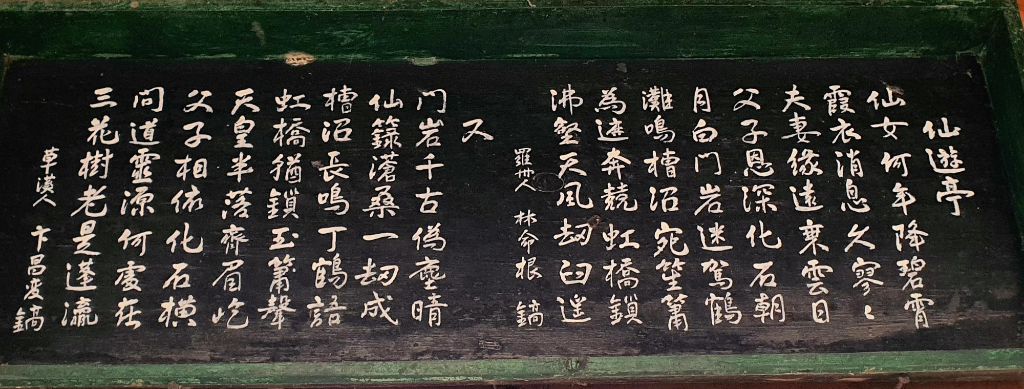 仙遊亭
仙女何年降碧霄
霞衣消息久寥〻
夫妻緣遠乘雲日
父子恩深化石朝
月白門岩迷駕鶴
灘鳴槽沼宛笙簫
為遮奔競虹橋鎖
沸壑天風劫臼遙
羅州人 林命根 鎬
又
門岩千古偽塵晴
仙籙滄桑一劫成
槽沼長鳴丁鶴語
虹橋猶鎖玉簫聲
天皇半落齊眉屹
父子相依化石橫
問道靈源何處在
三花樹老是蓬瀛
草溪人 卞昌度 鎬